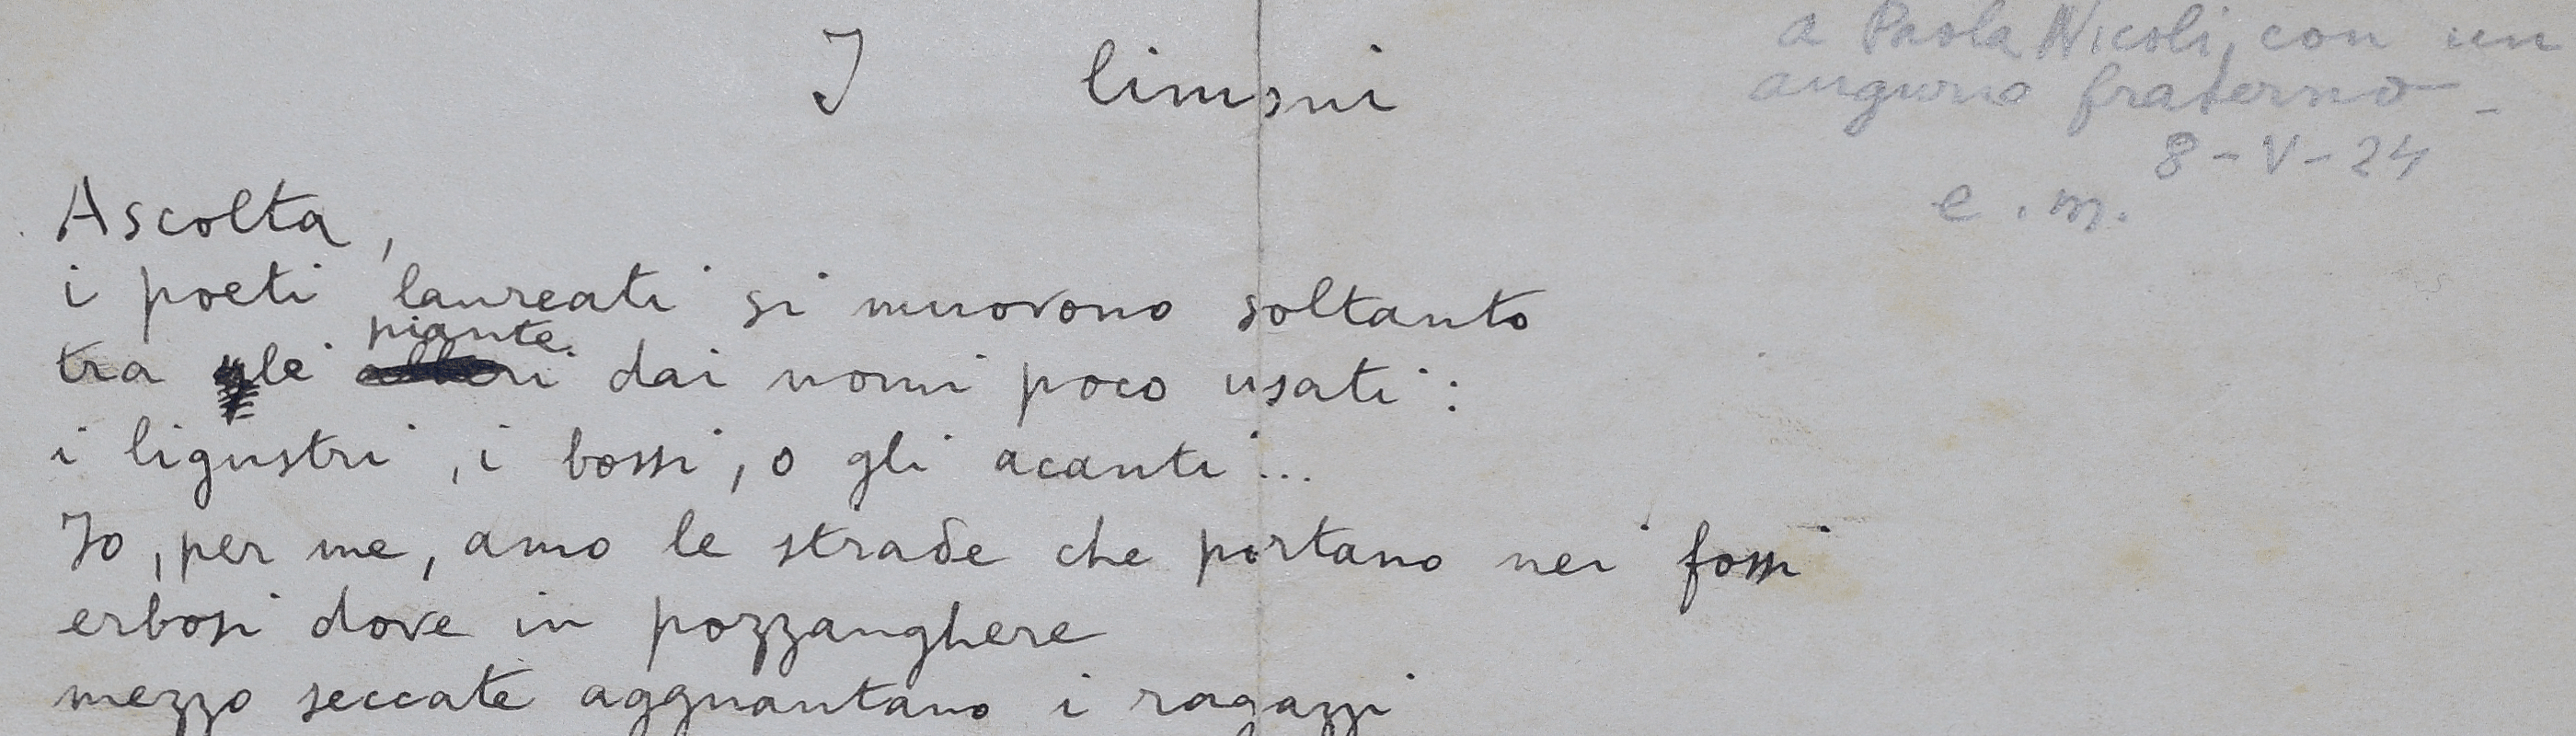 I limoni
a Paola Nicoli, con un
augurio fraterno -
8 - V - 24
e. m.
Ascolta,
i poeti laureati si muovono soltanto
piante
tra gle alberi dai nomi poco usati:
i ligustri, i bossi, o gli acanti...
Io, per me, amo le strade che portano nei fossi
erbosi dove in pozzanghere
mezzo seccate agguantano i ragazzi